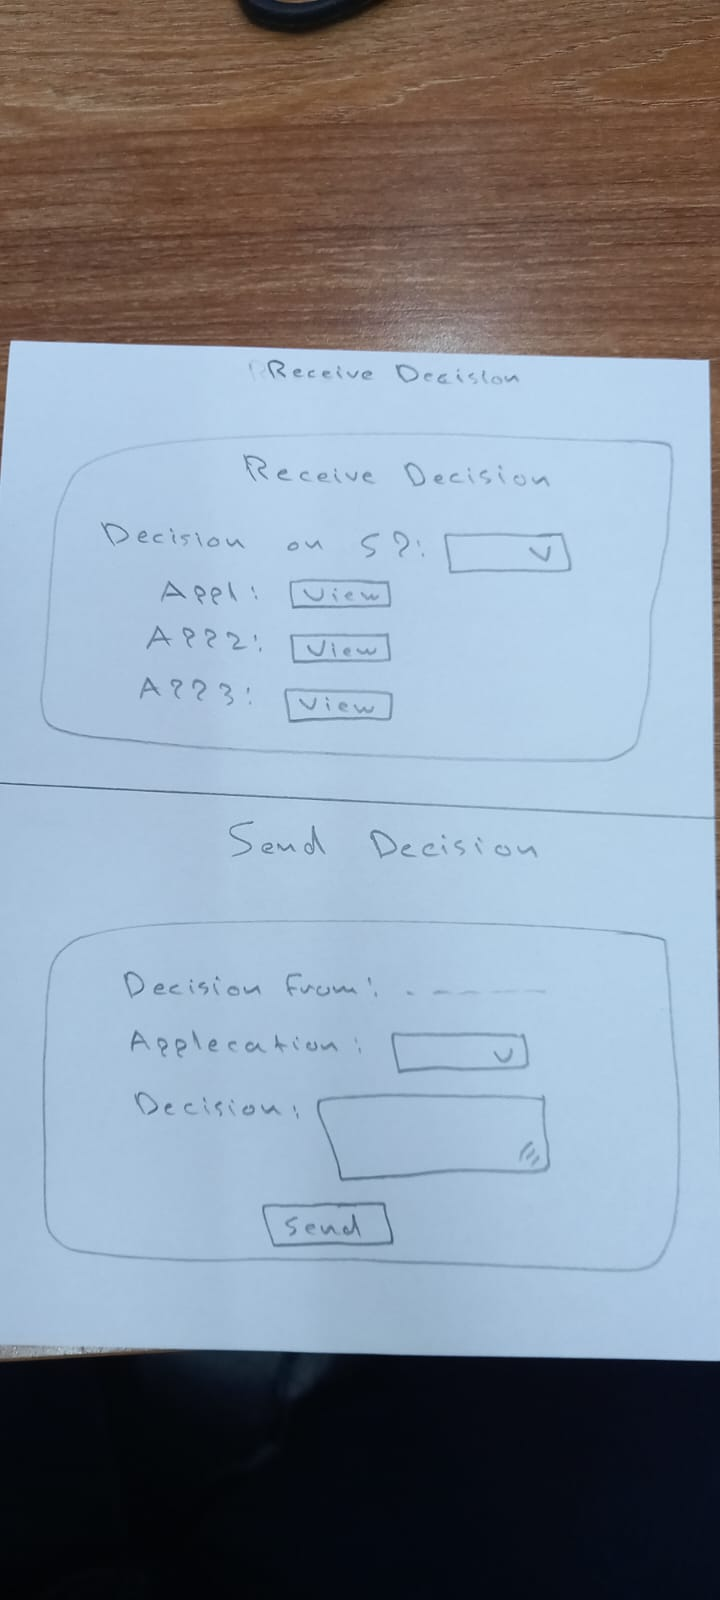 Receive Decision
Receive Decision
Decision on S?:
App1: View
App2: View
App3: View
Send Decision
Decision From: - - - - -
Applecation:
Decision:
Send